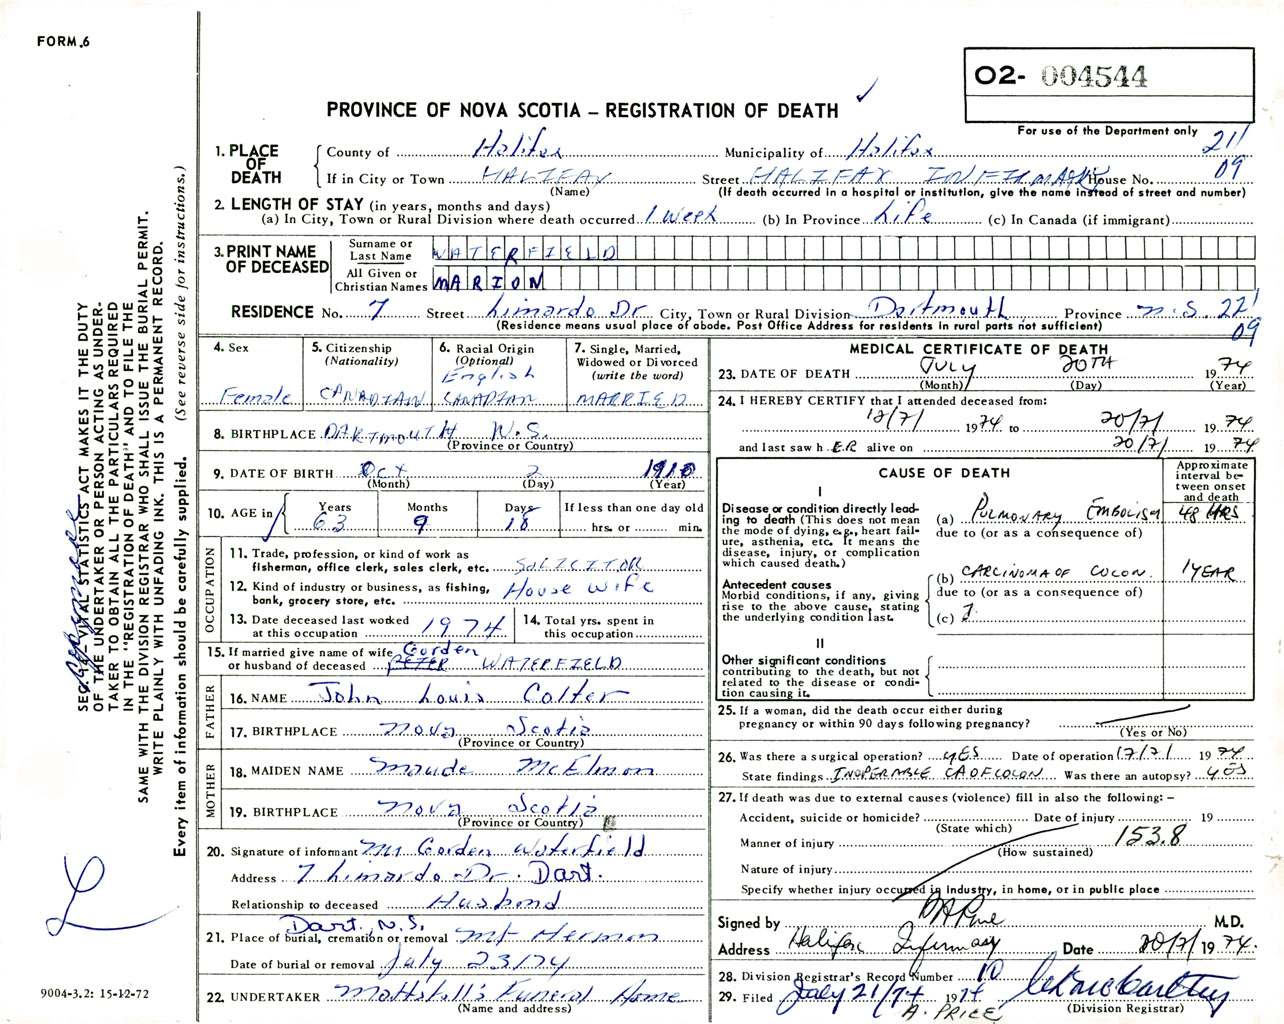 FORM 6
O2- 004544
PROVINCE OF NOVA SCOTIA – REGISTRATION OF DEATH
For use of the Department only
21/
09
1. PLACE OF DEATH
County of Halifax Municipality of Halifax
If in City or Town HALIFAX Street HALIFAX INFIRMARY House No.
(Name) (If death occurred in a hospital or institution, give the name instead of street and number)
2. LENGTH OF STAY (in years, months and days)
(a) In City, Town or Rural Division where death occurred 1 Week (b) In Province Life (c) In Canada (if immigrant)
3. PRINT NAME OF DECEASED
Surname or Last Name WATERFIELD
All Given or Christian Names MARION
RESIDENCE No. 7 Street Limardo Dr City, Town or Rural Division Dartmouth Province N.S. 22/
09
(Residence means usual place of abode. Post Office Address for residents in rural parts not sufficient)
4. Sex
Female
5. Citizenship
(Nationality)
CANADIAN
6. Racial Origin
(Optional)
English
CANADIAN
7. Single, Married,
Widowed or Divorced
(write the word)
MARRIED
8. BIRTHPLACE DARTMOUTH N.S.
(Province or Country)
9. DATE OF BIRTH Oct 2 1910
(Month) (Day) (Year)
10. AGE in
Years Months Days If less than one day old
63 9 18 hrs. or min.
OCCUPATION
11. Trade, profession, or kind of work as
fisherman, office clerk, sales clerk, etc. SOLICITOR
12. Kind of industry or business, as fishing,
bank, grocery store, etc. House Wife
13. Date deceased last worked
at this occupation 1974
14. Total yrs. spent in
this occupation
15. If married give name of wife Gorden
or husband of deceased PETER WATERFIELD
FATHER
16. NAME John Louis Colter
17. BIRTHPLACE Nova Scotia
(Province or Country)
MOTHER
18. MAIDEN NAME Maude McElmon
19. BIRTHPLACE Nova Scotia
(Province or Country)
20. Signature of informant Mr Gorden Waterfield
Address 7 Limardo Dr. Dart.
Relationship to deceased Husband
Dart. N.S.
21. Place of burial, cremation or removal Mt Hermon
Date of burial or removal July 23/74
22. UNDERTAKER Mattatall's Funeral Home
(Name and address)
MEDICAL CERTIFICATE OF DEATH
23. DATE OF DEATH JULY 20TH 1974
(Month) (Day) (Year)
24. I HEREBY CERTIFY that I attended deceased from:
12/7/ 1974 to 20/7/ 1974
and last saw h ER alive on 20/7/ 1974
CAUSE OF DEATH
Approximate
interval be-
tween onset
and death
I
Disease or condition directly lead-
ing to death (This does not mean
the mode of dying, e.g., heart fail-
ure, asthenia, etc. It means the
disease, injury, or complication
which caused death.)
(a) PULMONARY EMBOLISM 48 HRS
due to (or as a consequence of)
Antecedent causes
Morbid conditions, if any, giving
rise to the above cause, stating
the underlying condition last.
(b) CARCINOMA OF COLON. 1 YEAR
due to (or as a consequence of)
(c)
II
Other significant conditions
contributing to the death, but not
related to the disease or condi-
tion causing it.
25. If a woman, did the death occur either during
pregnancy or within 90 days following pregnancy?
(Yes or No)
26. Was there a surgical operation? YES Date of operation 17/7/ 1974
State findings INOPERABLE CA OF COLON Was there an autopsy? YES
27. If death was due to external causes (violence) fill in also the following: –
Accident, suicide or homicide? Date of injury 19
(State which)
Manner of injury 153.8
(How sustained)
Nature of injury
Specify whether injury occurred in Industry, in home, or in public place
Signed by A Price M.D.
Address Halifax Infirmary Date 20/7/ 1974.
28. Division Registrar's Record Number 10
29. Filed July 21/74 1974
(Division Registrar)
A. PRICE
SEC. 14. VITAL STATISTICS ACT MAKES IT THE DUTY
OF THE UNDERTAKER OR PERSON ACTING AS UNDER-
TAKER TO OBTAIN ALL THE PARTICULARS REQUIRED
IN THE "REGISTRATION OF DEATH" AND TO FILE THE
SAME WITH THE DIVISION REGISTRAR WHO SHALL ISSUE THE BURIAL PERMIT.
WRITE PLAINLY WITH UNFADING INK. THIS IS A PERMANENT RECORD.
Every item of information should be carefully supplied. (See reverse side for instructions.)
9004-3.2: 15-12-72